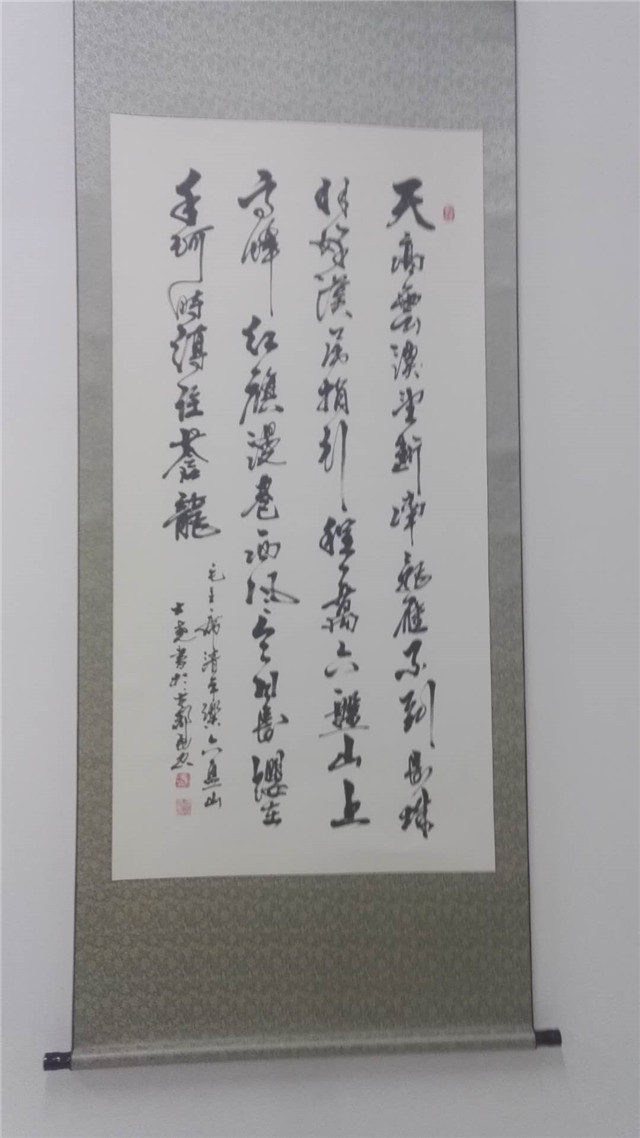 天高雲淡望斷南飛雁不到長城
非好漢屈指行程二萬六盤山上
高峰紅旗漫卷西風今日長纓在
手何時縛住蒼龍
毛主席清平樂六盤山
書於古都西安